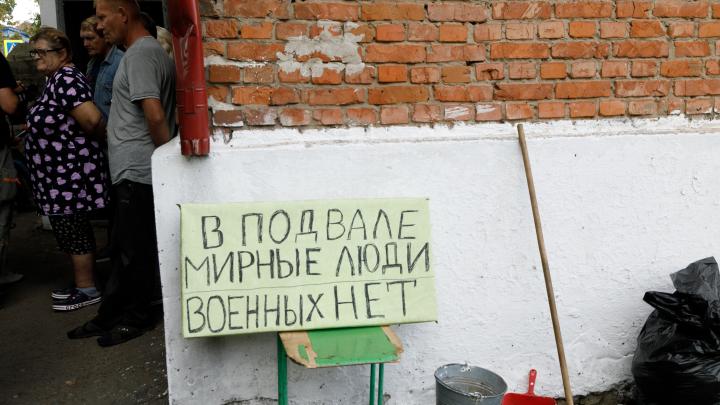 В ПОДВАЛЕ
МИРНЫЕ ЛЮДИ
ВОЕННЫХ НЕТ